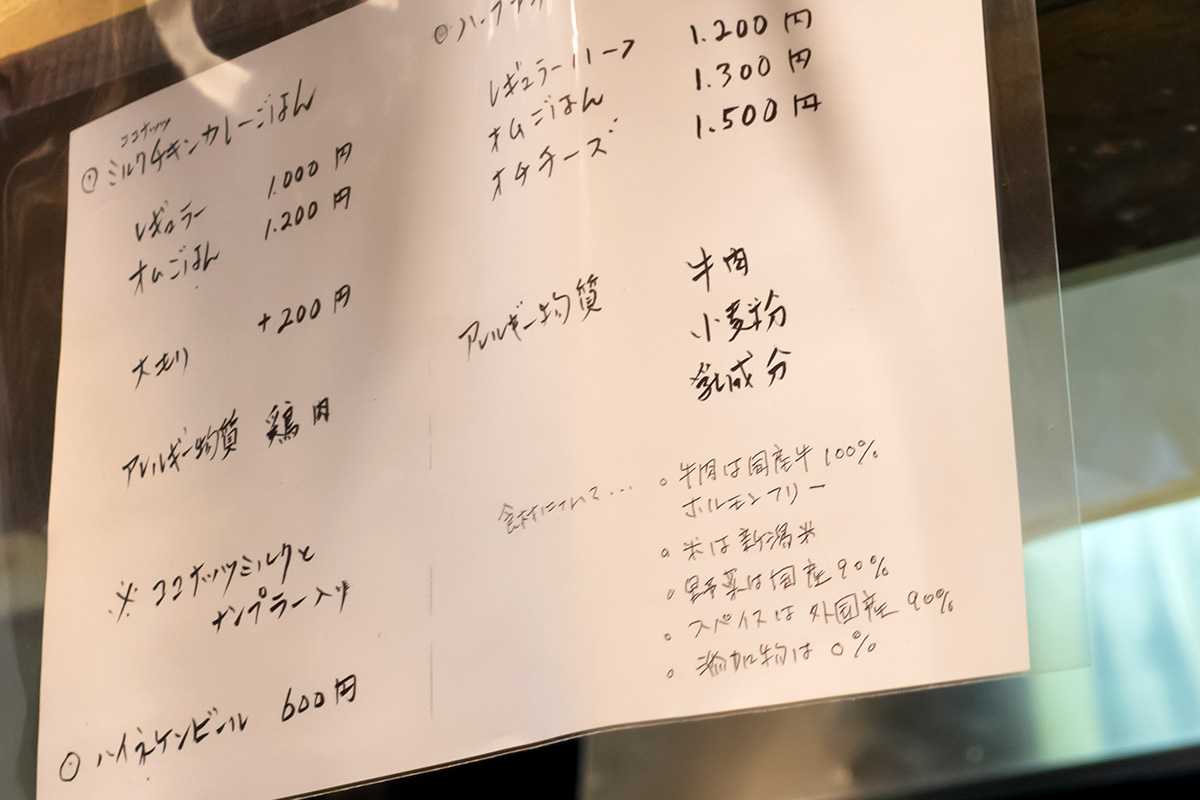 ココナッツ
⊙ ミルクチキンカレーごはん
レギュラー 1.000円
オムごはん 1.200円
大もり +200円
アレルギー物質 鶏肉
※ ココナッツミルクと
ナンプラー入り
⊙ ハイネケンビール 600円
レギュラーハーフ 1.200円
オムごはん 1.300円
オムチーズ 1.500円
アレルギー物質 牛肉
小麦粉
乳成分
食材について...
。牛肉は国産牛100%
ホルモンフリー
。米は新潟米
。野菜は国産90%
。スパイスは外国産90%
。添加物は0%